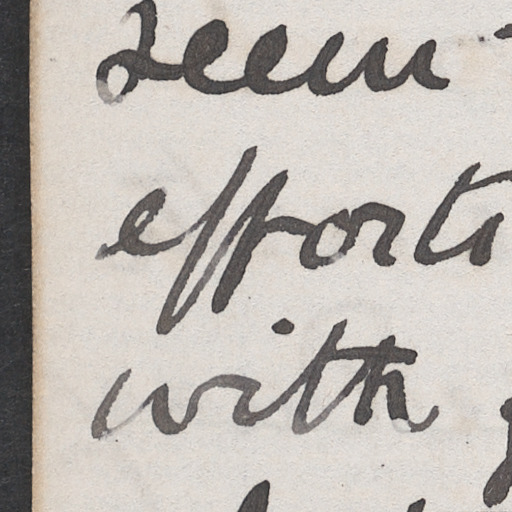 seem
efforts
with